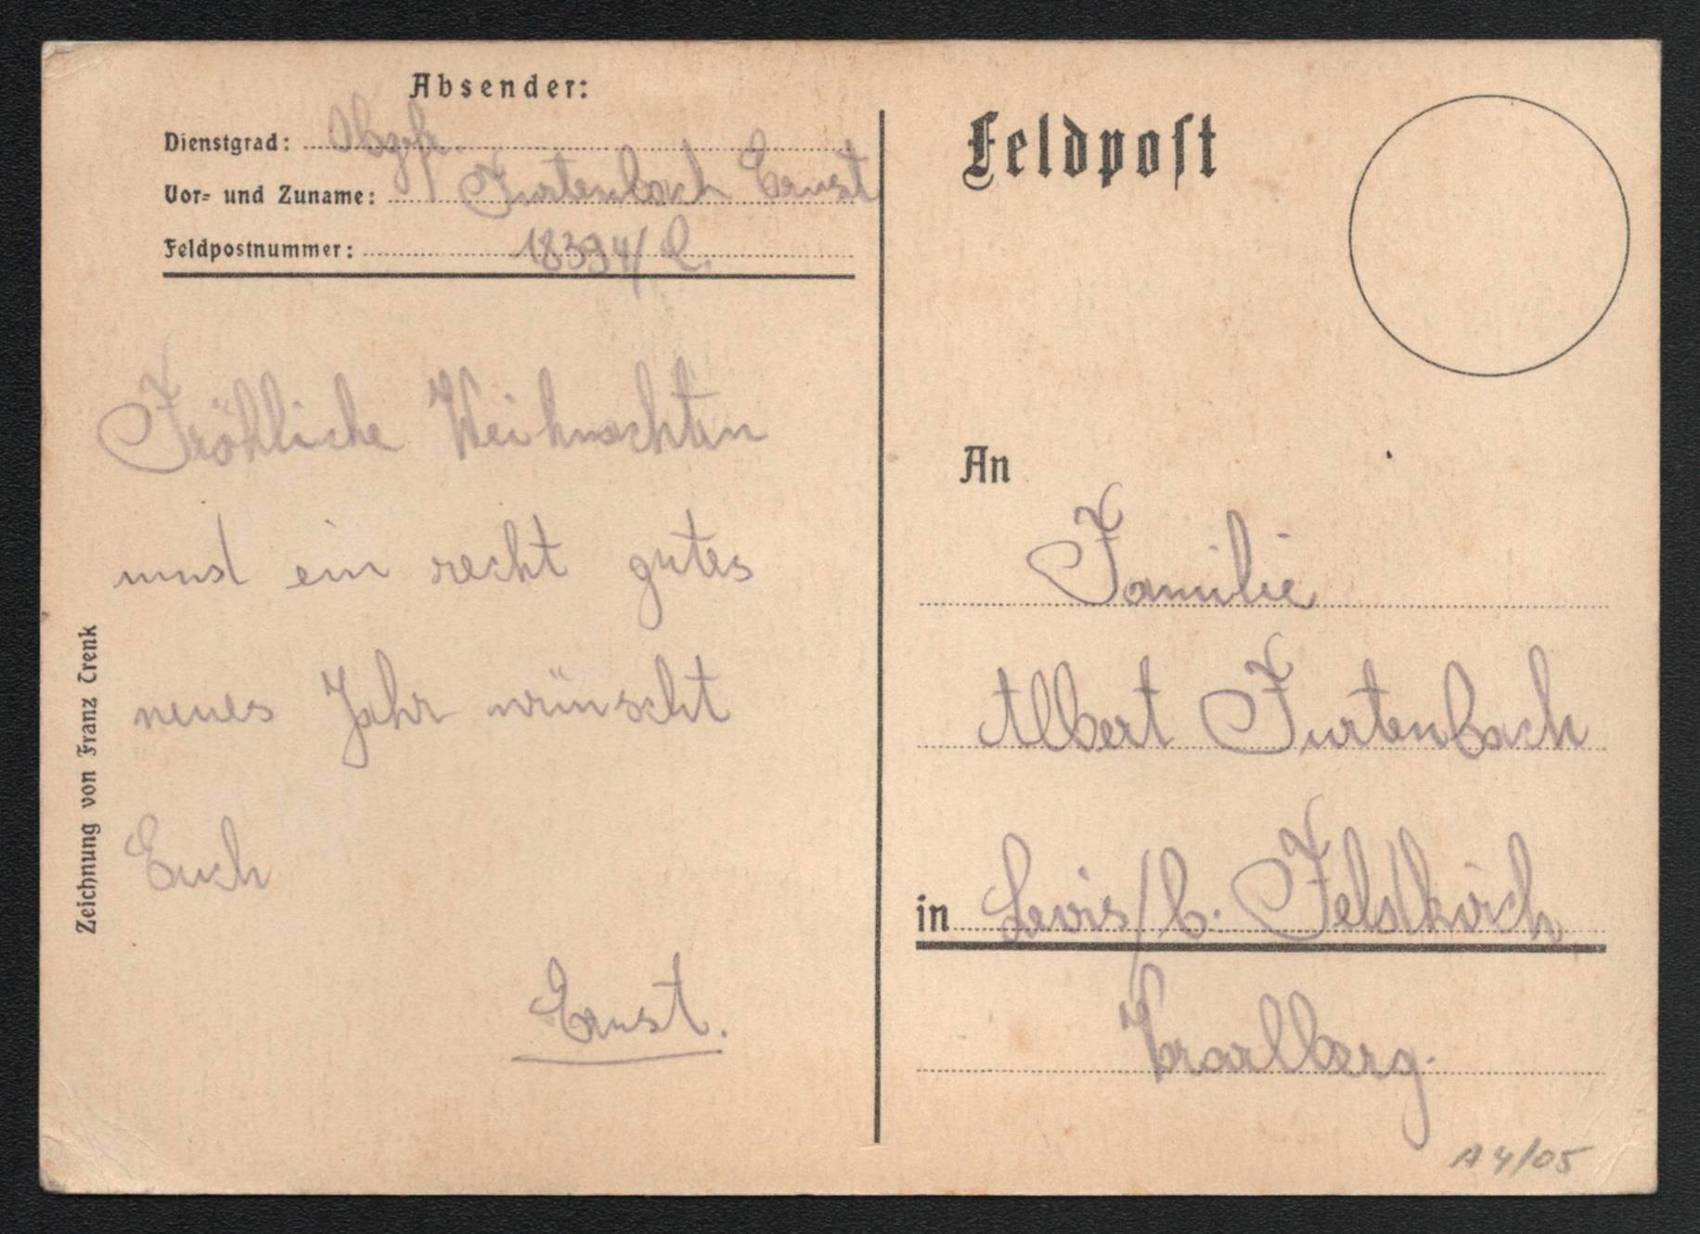 Absender:
Dienstgrad: Obgfr.
Vor- und Zuname: Furtenbach Ernst
Feldpostnummer: 18394/
Fröhliche Weihnachten
und ein recht gutes
neues Jahr wünscht
Euch
Ernst.
Zeichnung von Franz Trenk
Feldpost
An
Familie
Albert Furtenbach
in Levis/b. Feldkirch
Vorarlberg.
A 4/05